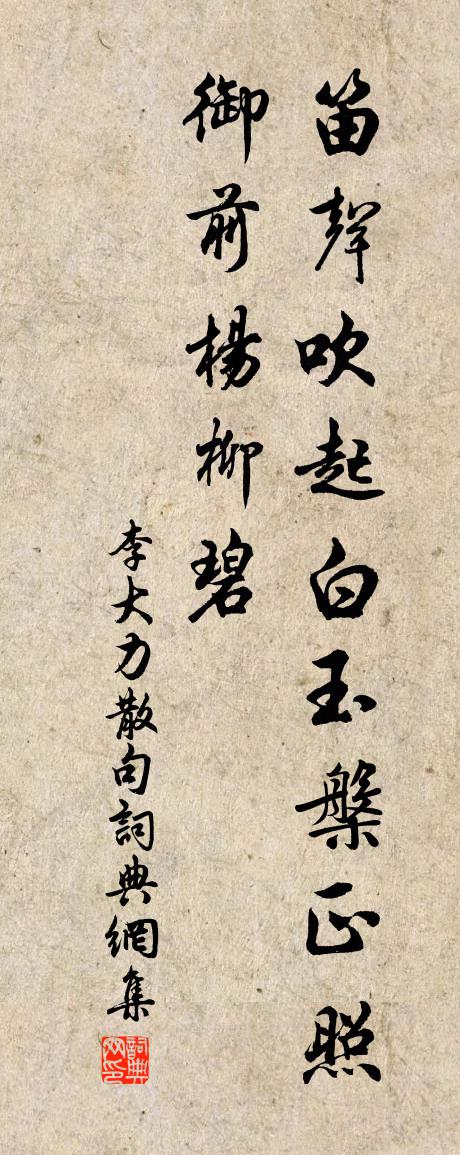 笛聲吹起白玉槃正照
御前楊柳碧
李大力散句詞典網集
詞典网印